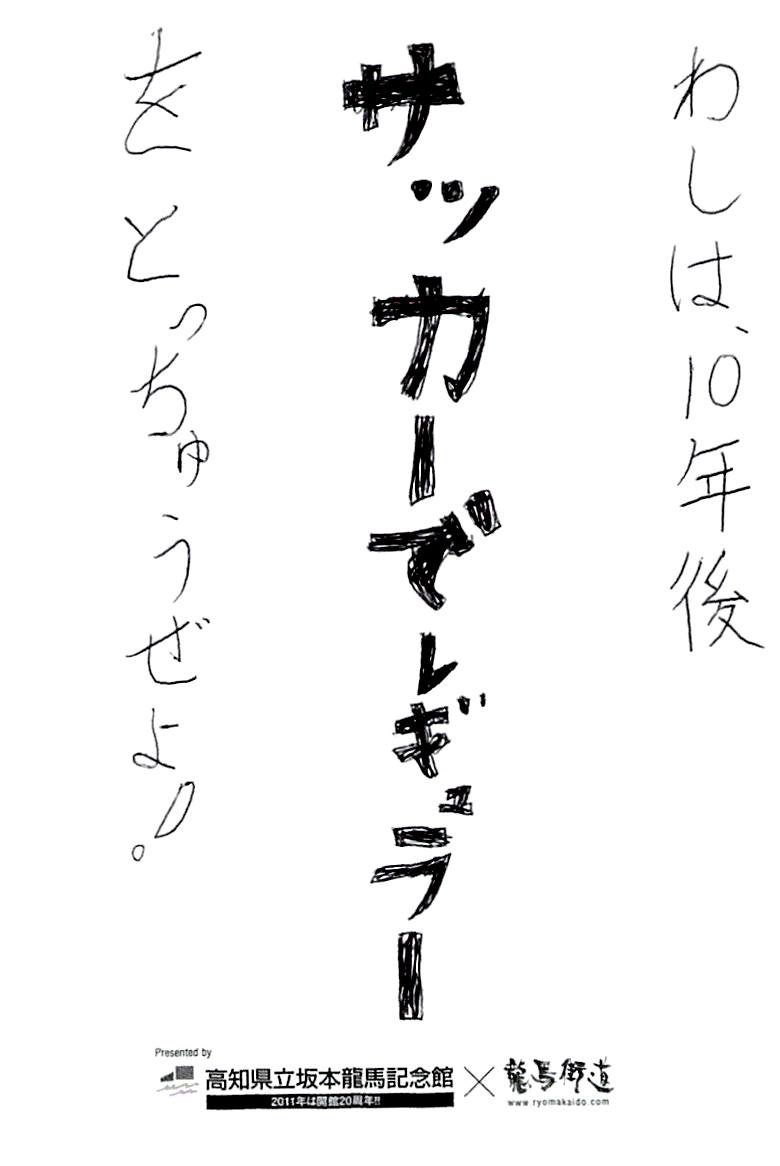 わしは、10年後
サッカーでレギュラー
をとっちゅうぜよ!
Presented by
高知県立坂本龍馬記念館×龍馬街道
2011年は開館20周年!!
www.ryomakaido.com